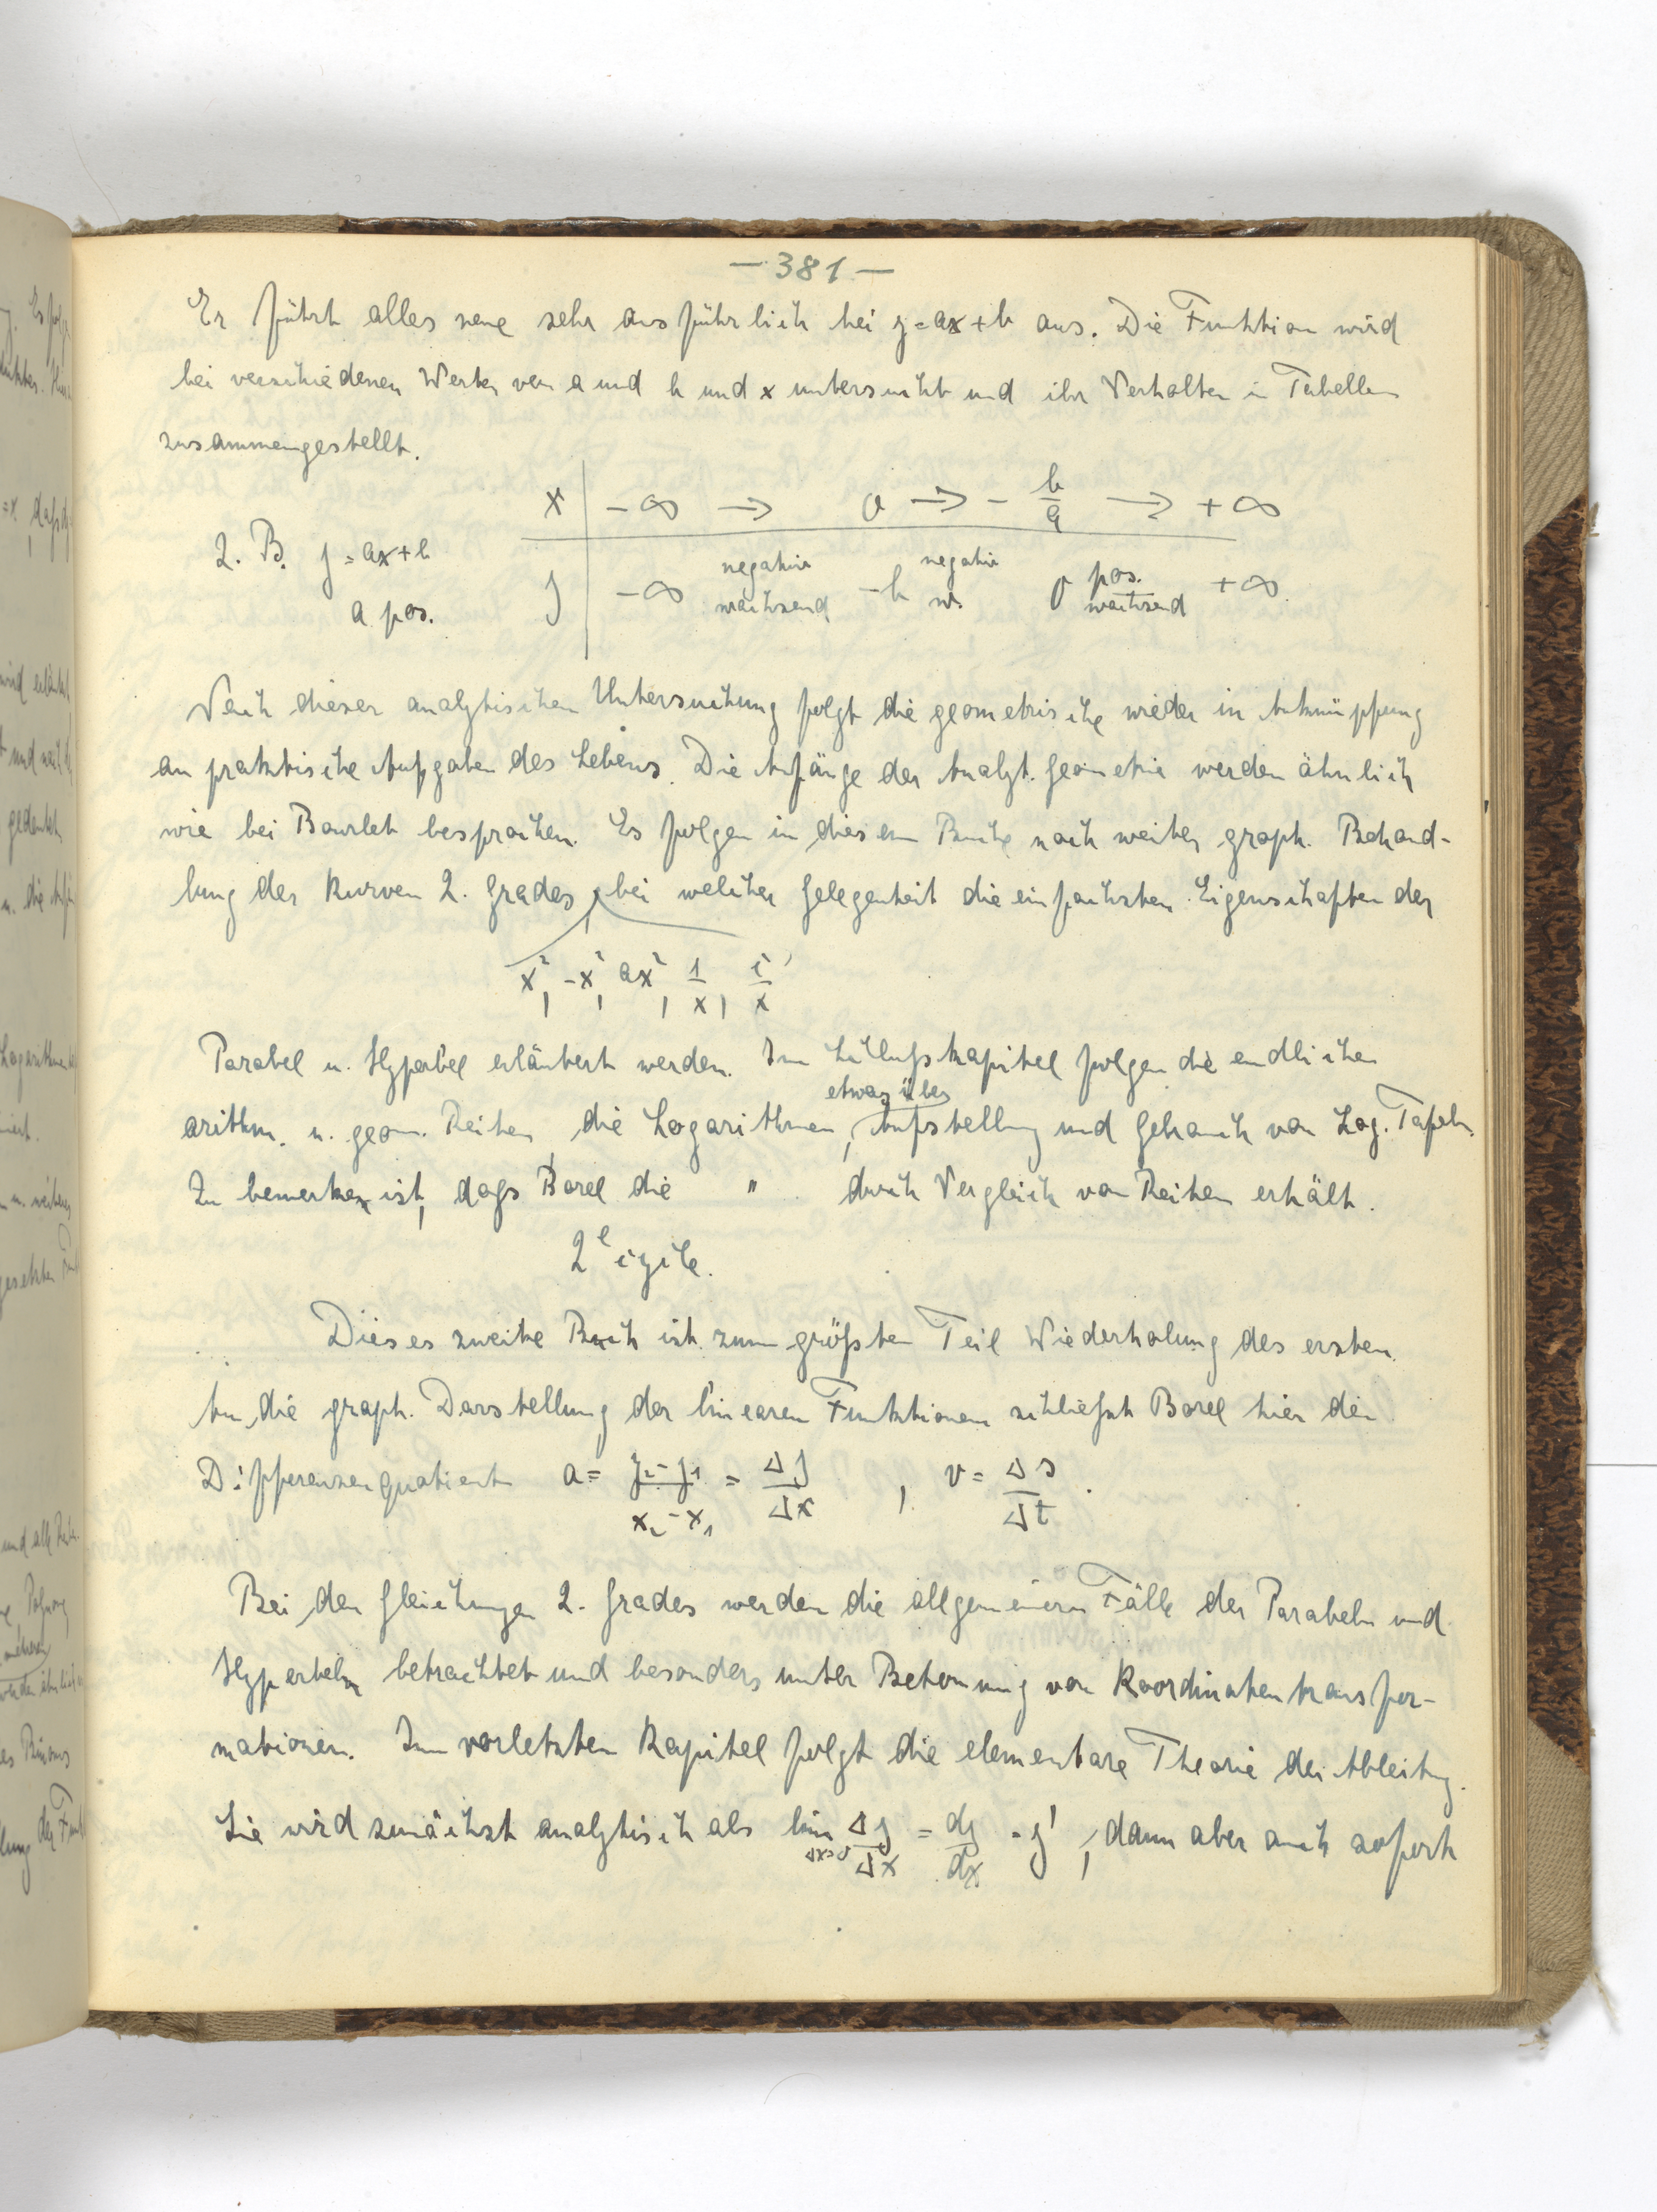 — 381 —
Er führt alles neue sehr ausführlich bei y = ax + b aus. Die Funktion wird
bei verschiedenen Werten von a und b und x untersucht und ihr Verhalten in Tabellen
zusammengestellt.
x | -∞ → 0 → - b/a → +∞
z. B. y = ax + b
a pos.
y | -∞ negativ wachsend -b negativ w. 0 pos. wachsend +∞
Nach dieser analytischen Untersuchung folgt die geometrische wieder in Anknüpfung
an praktische Aufgaben des Lebens. Die Anfänge der Analyt. Geometrie werden ähnlich
wie bei Bourlet besprochen. Es folgen in diesem Buche noch weiter graph. Behand-
lung der Kurven 2. Grades, bei welcher Gelegenheit die einfachsten Eigenschaften der
x², -x², ax², 1/x, c/x
Parabel u. Hyperbel erläutert werden. Im Schlußkapitel folgen die endlichen
etwas über
arithm. u. geom. Reihen, die Logarithmen, Aufstellung und Gebrauch von Log. Tafeln.
Zu bemerken ist, dass Borel die " durch Vergleich von Reihen erhält.
2e cycle.
Dieses zweite Buch ist zum größten Teil Wiederholung des ersten.
An die graph. Darstellung der linearen Funktionen schließt Borel hier den
Differenzenquotient a = y₂-y₁/x₂-x₁ = Δy/Δx , v = Δs/Δt .
Bei den Gleichungen 2. Grades werden die allgemeinern Fälle der Parabeln und
Hyperbeln betrachtet und besonders unter Betonung von Koordinatentransfor-
mationen. Im vorletzten Kapitel folgt die elementare Theorie der Ableitung.
Sie wird zunächst analytisch als lim Δx=0 Δy/Δx = dy/dx = y' , dann aber auch sofort